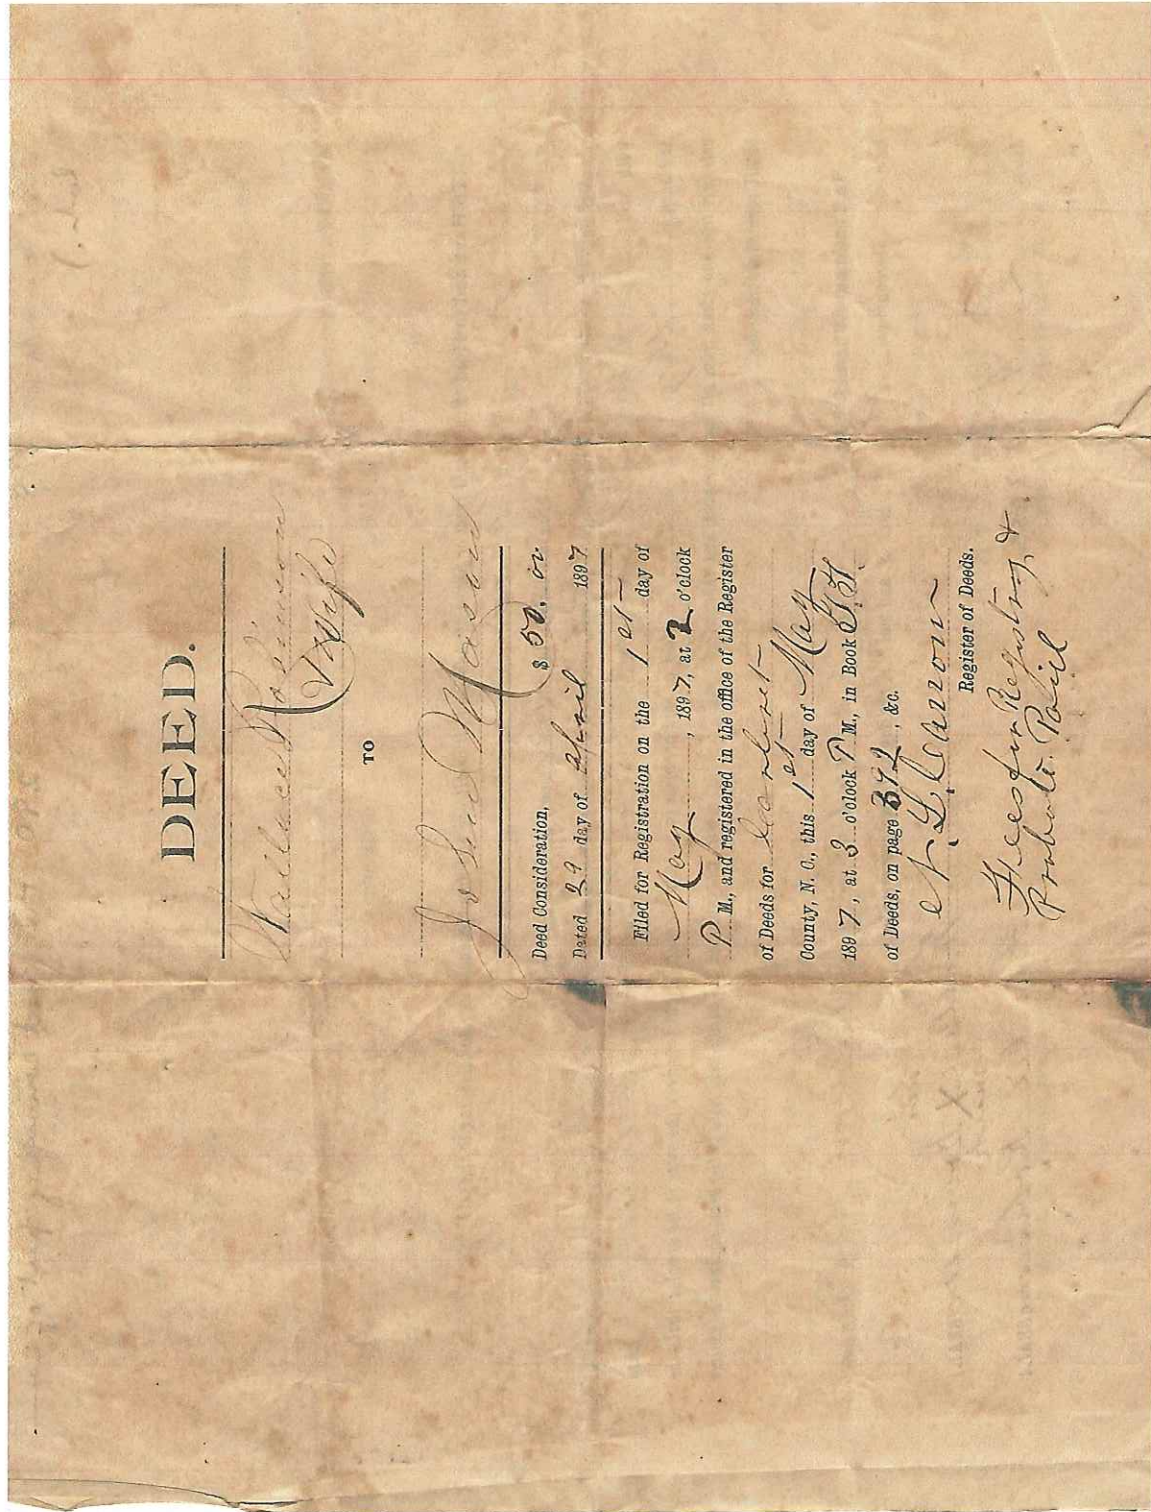 DEED.
Wallace Robinson
& Wife
TO
John Mason
Deed Consideration, $ 50. 00
Dated 29 day of April 1897
Filed for Registration on the 1st day of
May , 1897, at 2 o'clock
P. M., and registered in the office of the Register
of Deeds for Carteret
County, N. C., this 1st day of May
1897, at 3 o'clock P M., in Book
of Deeds, on page 392, &c.
Register of Deeds.
Fees for Registry, &
Probate Paid